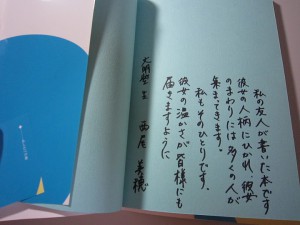 私の友人が書いた本です
彼女の人柄にひかれ、彼女
のまわりには多くの人が
集まってきます。
私もそのひとりです。
彼女の温かさが皆様にも
届きますように
西尾 美穂